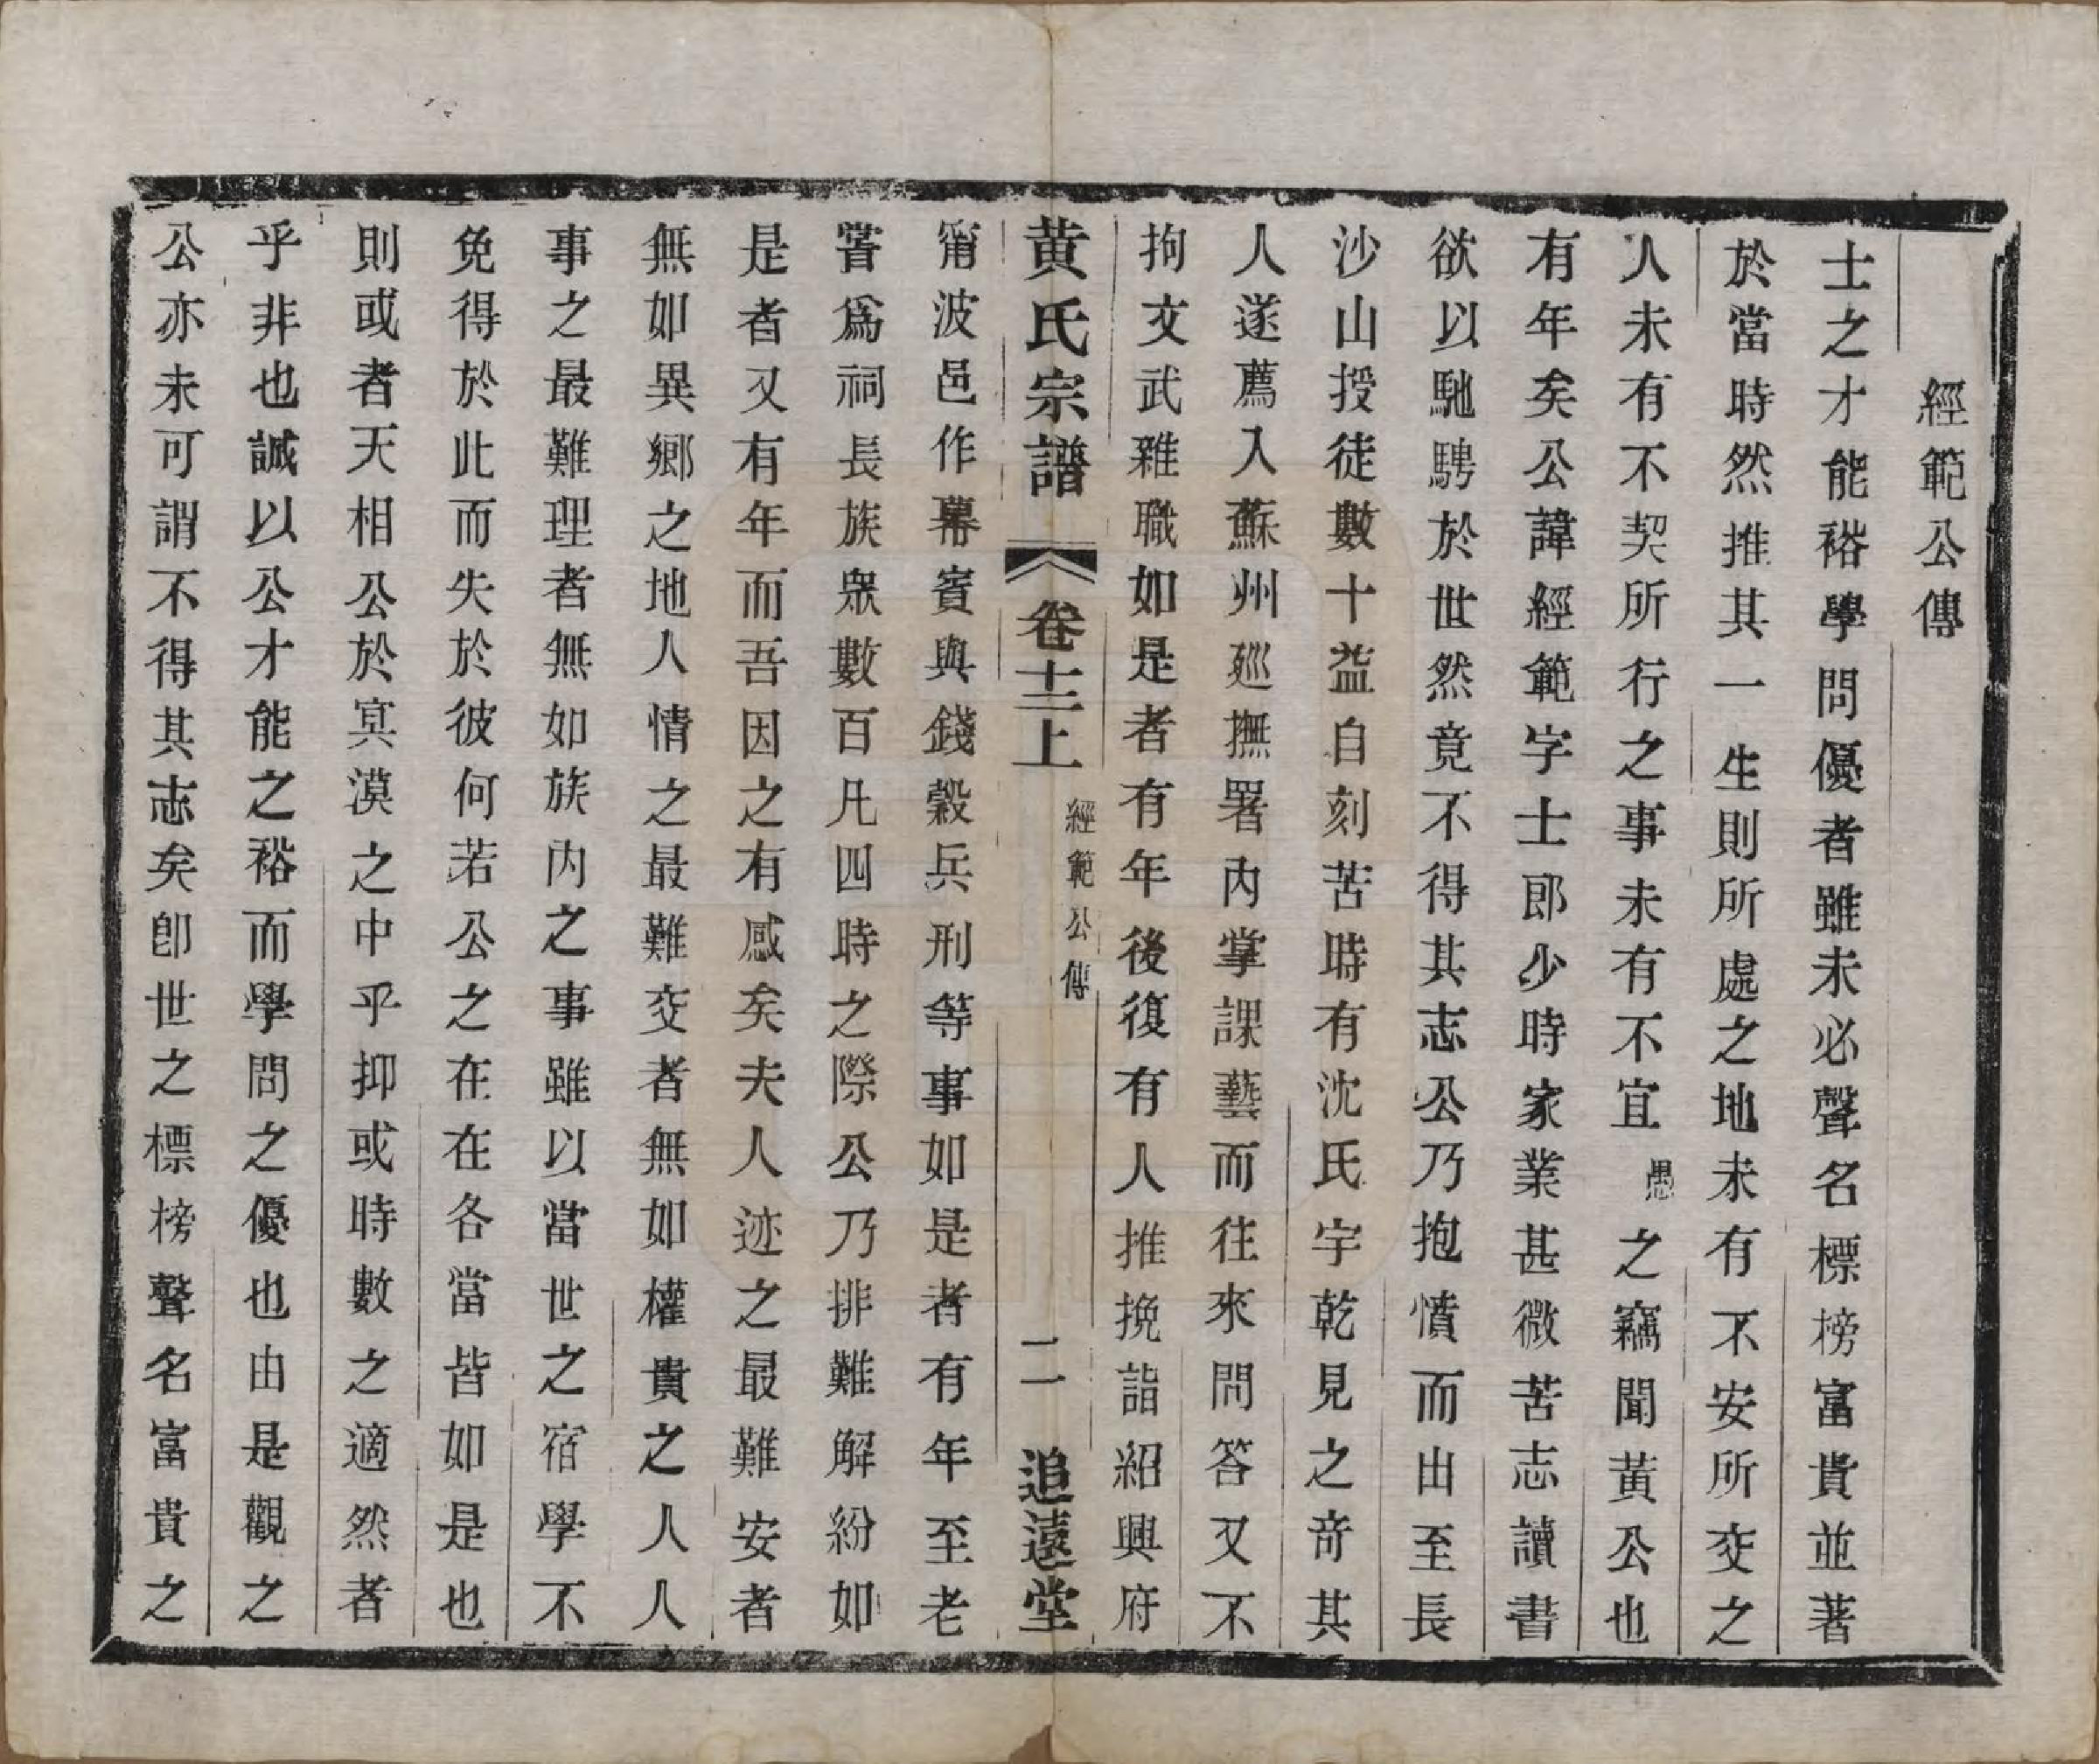 經範公傳
士之才能裕學問優者雖未必聲名標榜富貴並著
於當時然推其一生則所處之地未有不安所交之
人未有不契所行之事未有不宜愚之竊聞黃公也
有年矣公諱經範字士郎少時家業甚微苦志讀書
欲以馳騁於世然竟不得其志公乃抱憤而出至長
沙山授徒數十益自刻苦時有沈氏宇乾見之奇其
人遂薦入蘇州巡撫署內掌課藝而往來問答又不
拘文武雜職如是者有年後復有人推挽詣紹興府
黃氏宗譜 卷十三上 經範公傳 二 追遠堂
甯波邑作幕賓與錢穀兵刑等事如是者有年至老
嘗爲祠長族衆數百凡四時之際公乃排難解紛如
是者又有年而吾因之有感矣夫人迹之最難安者
無如異鄉之地人情之最難交者無如權貴之人人
事之最難理者無如族內之事雖以當世之宿學不
免得於此而失於彼何若公之在在各當皆如是也
則或者天相公於冥漠之中乎抑或時數之適然者
乎非也誠以公才能之裕而學問之優也由是觀之
公亦未可謂不得其志矣卽世之標榜聲名富貴之